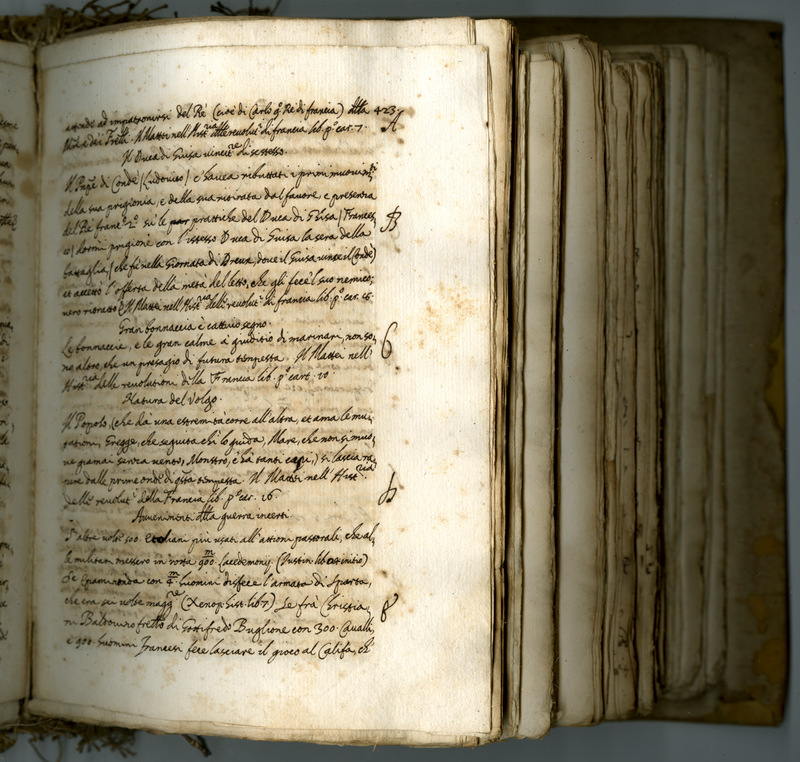 attende ad impatronirsi del Rè (cioè di Carlo 9.° Rè di francia) dalla 423
Il Mattei nell'Hist.ria delle revolut.i di francia lib. p.° car. 7. A
Il Duca di Guisa vincit.re di se stesso.
Il Pnpe di Condè (Ludovico) c'havea ributtati i primi
della sua prigionia, e della sua ritirata dal favore, e presenza
del Rè franc.o 2.° sù le prattiche del Duca di Guisa (Frances, B
co) dormì prigione con l'istesso Duca di Guisa la sera della
battaglia (che fù nella Giornata di Dreux, dove il Guisa vince il Condè)
et accettò l'offerta della metà del letto, che gli fece 'l suo nemico,
Il Mattei nell'Hist.ria delle revolut.i di francia lib. p.° car.
Gran bonnaccia è cattivo segno.
Le bonnaccie, e le gran calme à giuditio di marinari, non so,
no altro, che un presagio di futura tempesta. Il Mattei nell' 6
Hist.ria delle revolutioni della Francia lib. p.° cart. 10.
Natura del Volgo.
Il Popolo, (che dà una estremità corre all'altra, et ama le mu,
tationi, Gregge, che seguita chi lo guida, Mare, che non si muo,
ve giamai senza vento, Mostro, c'hà tanti capi,) si lascia ra,
pire dalle prime onde di q.sta tempesta. Il Mattei nell'Hist.ria
delle revolut.i della Francia lib. p.° car. 16. D
Avvenimenti della guerra incerti.
altre volte 500. Etoliani più usati all'attioni pastorali, che al,
le militari messero in rotta 900. Lacedemonij. (Justin lib.
Epaminonda con 4. huomini disfece l'armata di Sparta,
che era sei volte magg.re (Xenoph. hist. lib. 7) Se frà Christia, 8
ni Baldovino fratello di Gottifredo Buglione con 300. Cavalli,
e 900. huomini Francesi fece lasciare il gioco al Califa, ch'